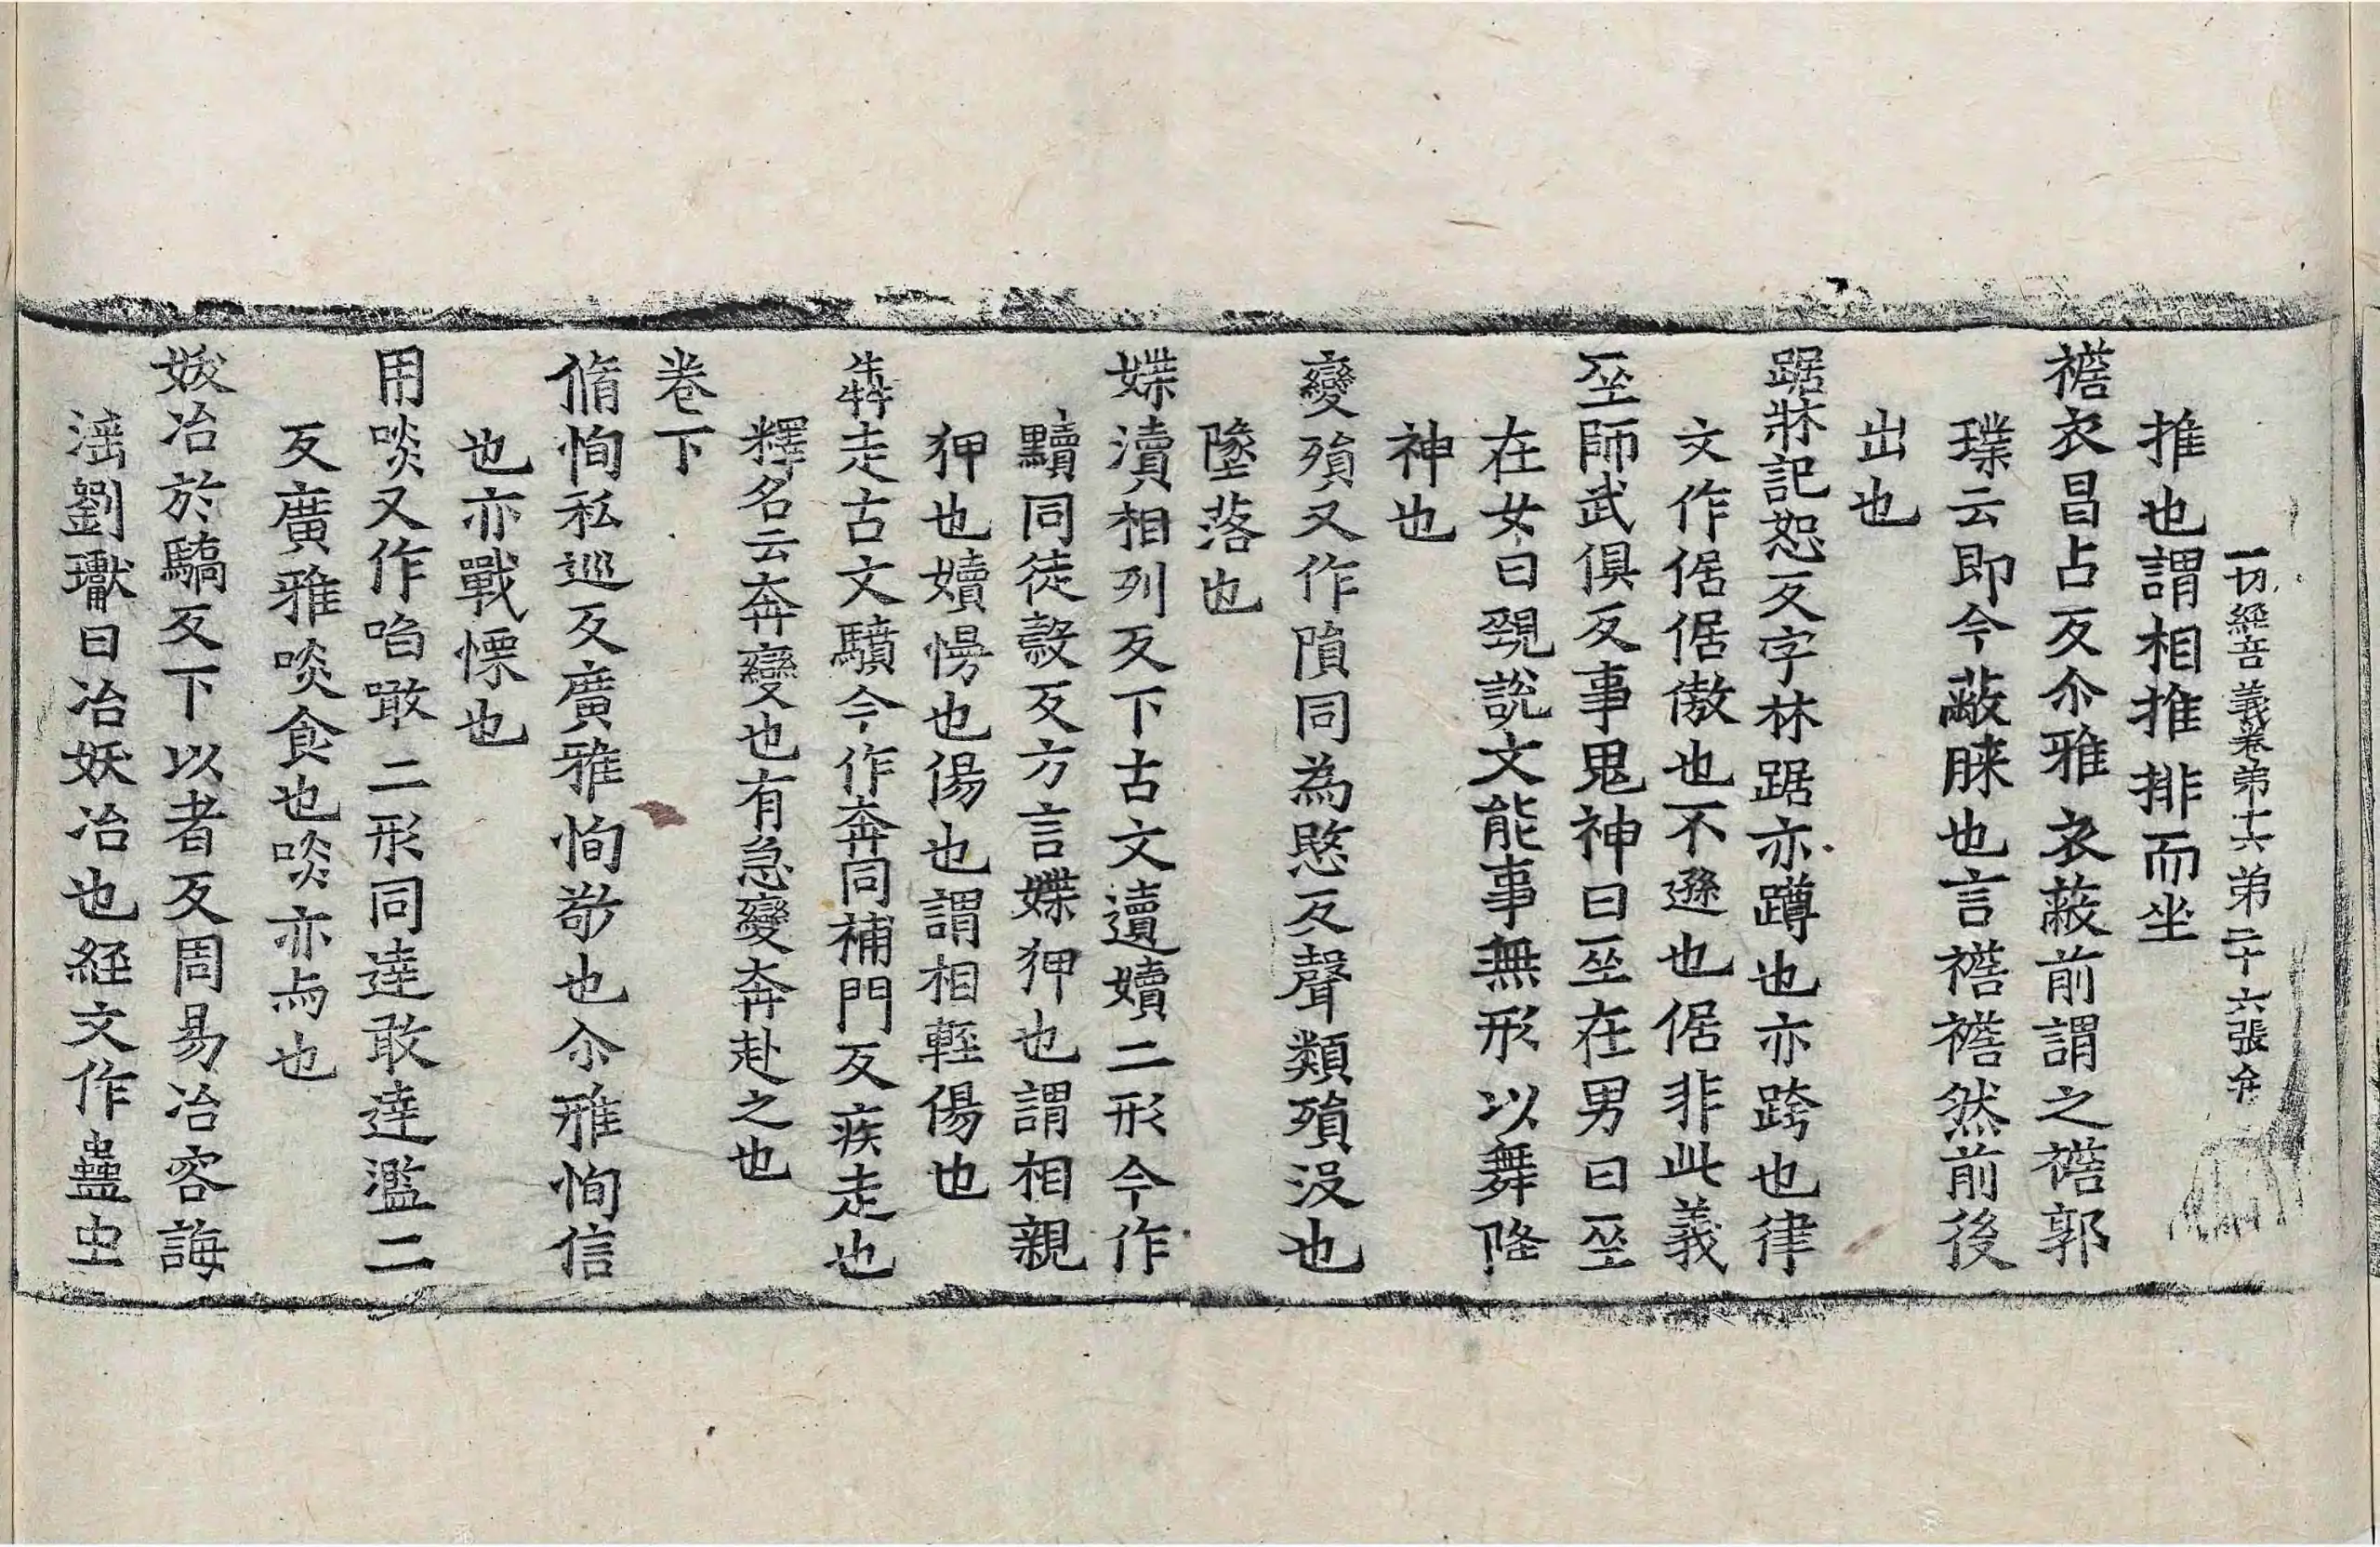 一切經音義卷弟十六弟二十六張
推也謂相推排而坐
襜衣昌占反尒雅衣蔽前謂之襜郭
璞云即今蔽膝也言襜襜然前後
出也
踞牀記恕反字林踞亦蹲也亦跨也律
文作倨倨傲也不遜也倨非此義
巫師武俱反事鬼神曰巫在男曰巫
在女曰覡說文能事無形以舞降
神也
變殞又作隕同為愍反聲類殞沒也
墜落也
媟瀆相列反下古文遺嬻二形今作
黷同徒穀反方言媟狎也謂相親
狎也嬻慢也傷也謂相輕傷也
犇走古文驞今作奔同補門反疾走也
釋名云奔變也有急變奔赴之也
卷下
脩恂私巡反廣雅恂敬也尒雅恂信
也亦戰慄也
用啖又作啗噉二形同達敢達濫二
反廣雅啖食也啖亦与也
妭冶於驕反下以者反周易冶容誨
滛劉瓛曰冶妖冶也經文作蠱虫